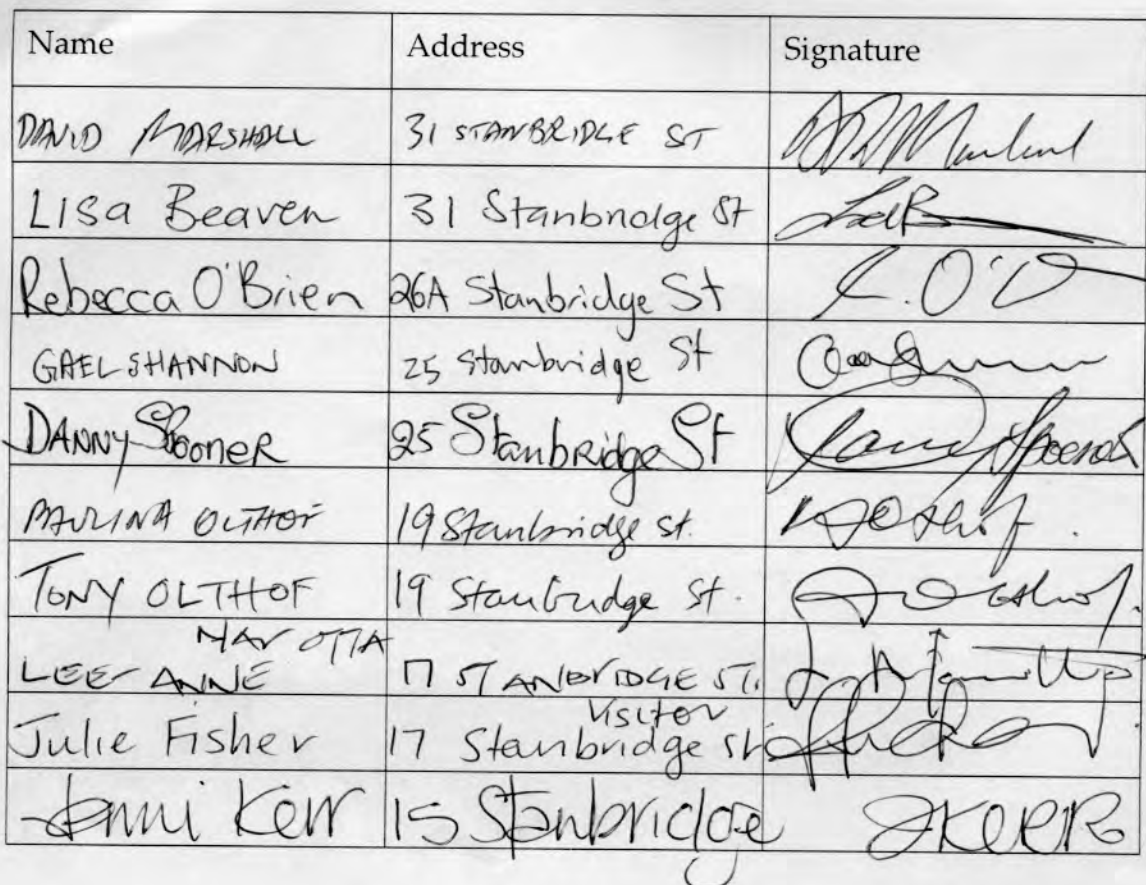 Name Address Signature
DAVID MARSHALL 31 STANBRIDGE ST
LISA Beaven 31 Stanbridge St
Rebecca O'Brien 26A Stanbridge St R. O'B
GAEL SHANNON 25 Stanbridge St
DANNY SpooneR 25 Stanbridge St Danny Spooner
PAULINA OLTHOF 19 Stanbridge st.
TONY OLTHOF 19 Stanbridge st.
LEE-ANNE 17 STANBRIDGE ST.
Visitor
Julie Fisher 17 Stanbridge st
Jenni Kerr 15 Stanbridge JKERR